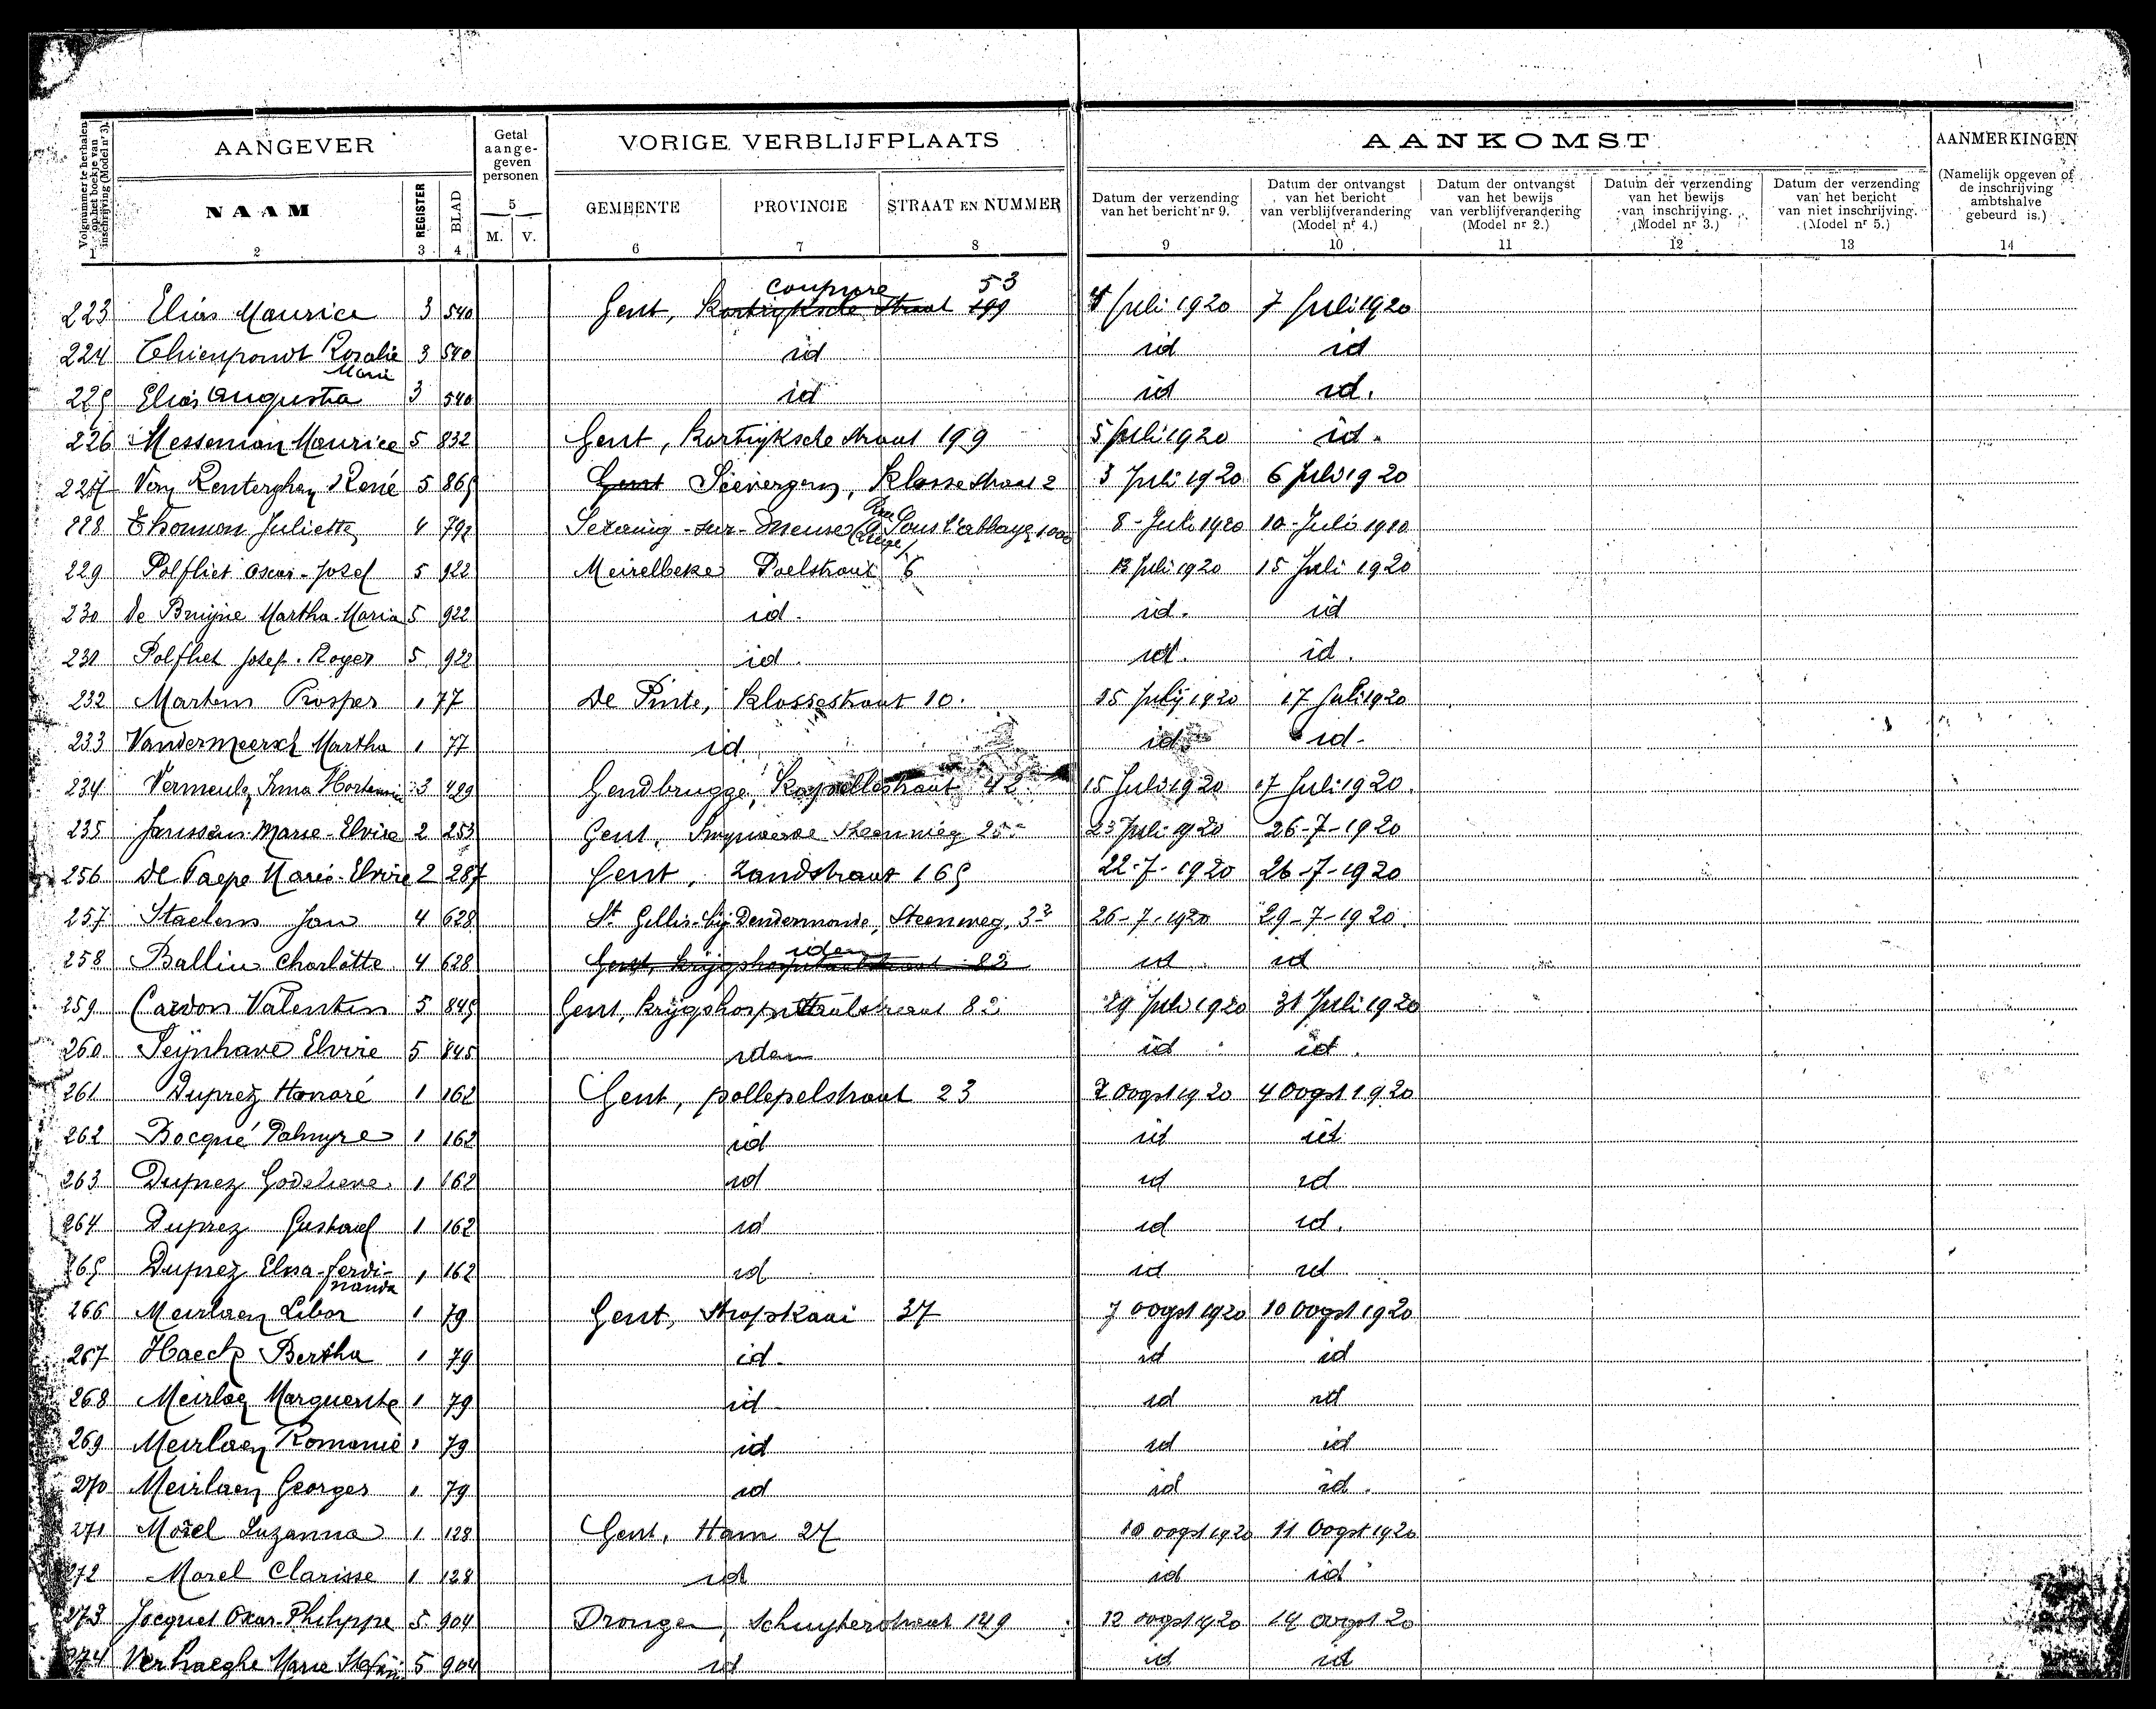 Volgnummer te herhalen op het boekje van inschrijving (Model nr 3). 1
AANGEVER
NAAM 2
REGISTER 3
BLAD 4
Getal aange- geven personen
5
M. V.
VORIGE VERBLIJFPLAATS
GEMEENTE 6
PROVINCIE 7
STRAAT EN NUMMER 8
AANKOMST
Datum der verzending van het bericht nr 9. 9
Datum der ontvangst van het bericht van verblijfverandering (Model nr 4.) 10
Datum der ontvangst van het bewijs van verblijfverandering (Model nr 2.) 11
Datum der verzending van het bewijs van inschrijving. (Model nr 3.) 12
Datum der verzending van het bericht van niet inschrijving. (Model nr 5.) 13
AANMERKINGEN
(Namelijk opgeven of de inschrijving ambtshalve gebeurd is.)
14
coupure 53
223 Elias Maurice 3 540 Gent, Kortrijksche Straat 199 4 Juli 1920 7 Juli 1920
224 Thienpondt Rosalie Marie 3 540 id id id
225 Elias Augusta 3 540 id id id.
226 Messeman Maurice 5 832 Gent, Kortrijksche straat 199 5 Juli 1920 id.
227 Van Renterghem René 5 865 Gent Sievergem, Klosse straat 2 3 Juli 1920 6 Juli 1920
228 Thomon Juliette 4 792 Seraing-sur-Meuse (Liége) Rue Sous l'abbaye 8-Juli 1920 10-Juli 1920
229 Polfliet Oscar-Josef 5 922 Meirelbeke Poelstraat 6 13 Juli 1920 15 Juli 1920
230 De Bruijne Martha-Maria 5 922 id. id. id
231 Polfliet Josef-Roger 5 922 id. id. id.
232 Martens Prosper 1 77 De Pinte, Klossestraat 10. 15 July 1920 17 Juli 1920
233 Vandermeersch Martha 1 77 id. id. id-
234 Vermeulen Irma Hortensia 3 429 Gendbrugge, Kapellestraat 42 15 Juli 1920 17 Juli 1920.
235 Janssens Marie-Elvire 2 253 Gent, Steenweg 23 Juli 1920 26-7-1920
256 De Paepe Marie-Elvire 2 287 Gent, Zandstraat 165 22-7-1920 26-7-1920
257 Staelens Jan 4 628 St Gillis-bij Dendermonde, Steenweg, 26-7-1920 29-7-1920.
idem
258 Ballin Charlotte 4 628 Gent, krijgshospitaalstraat 82 id id
259 Cardon Valentin 5 845 Gent, krijgshospitaalstraat 82 29 Juli 1920 31 Juli 1920
260 Seijnhave Elvire 5 845 idem id id.
261 Duprez Honoré 1 162 Gent, pollepelstraat 23 2 Oogst 1920 4 Oogst 1920
262 Bocqué Palmyre 1 162 id id id
263 Duprez Godelieve 1 162 id id id
264 Duprez Gustaaf 1 162 id id id.
265 Duprez Elisa-Ferdinanda 1 162 id id id
266 Meirlaen Libor 1 79 Gent, Stropkaai 37 7 oogst 1920 10 oogst 1920
267 Haeck Bertha 1 79 id. id id
268 Meirlaen Marguerite 1 79 id id id
269 Meirlaen Romanie 1 79 id id id
270 Meirlaen Georges 1 79 id id id.
271 Morel Suzanna 1 128 Gent, Ham 27 10 oogst 1920 11 Oogst 1920
272 Morel Clarisse 1 128 id id id
273 Jacquet Oscar-Philippe 5 904 Drongen, Schuyterstraat 149 12 oogst 1920 14 oogst 20
274 Verhaeghe Marie 5 904 id id id